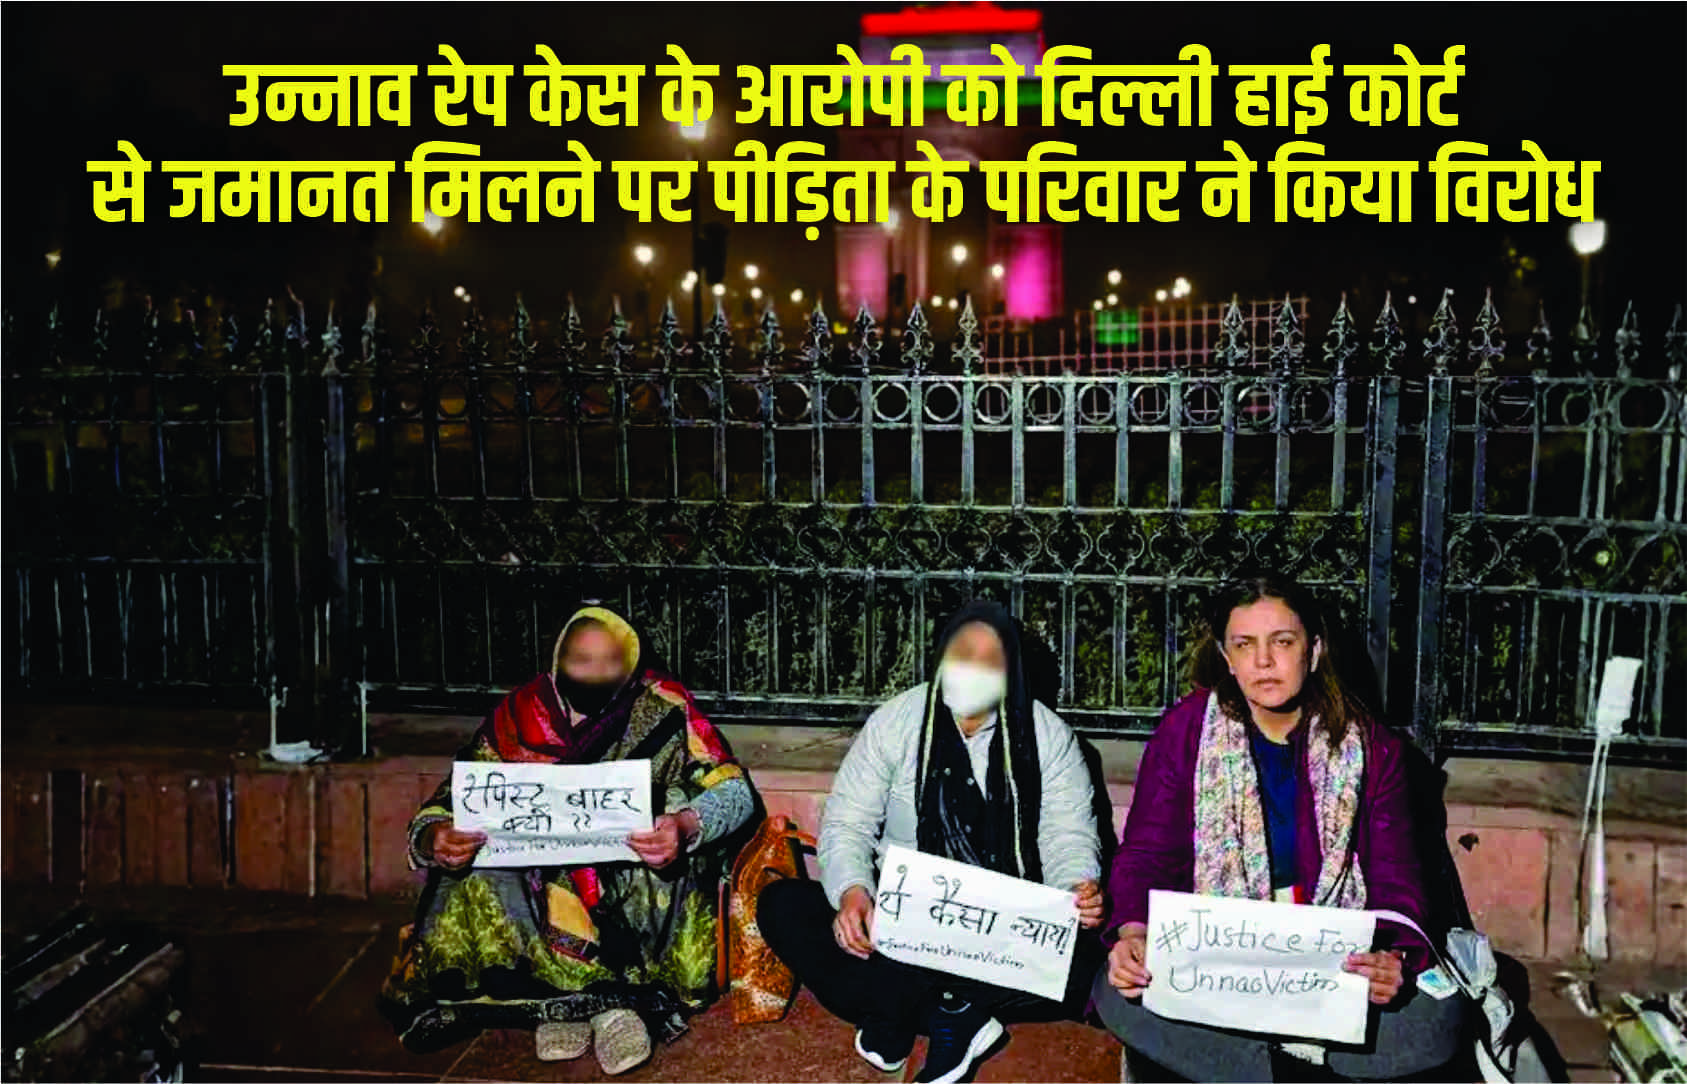 उन्नाव रेप केस के आरोपी को दिल्ली हाई कोर्ट
से जमानत मिलने पर पीड़िता के परिवार ने किया विरोध
रेपिस्ट बाहर
क्यों ??
#JusticeForUnnaoVictim
ये कैसा न्याय?
#JusticeForUnnaoVictim
#JusticeFor
UnnaoVictim